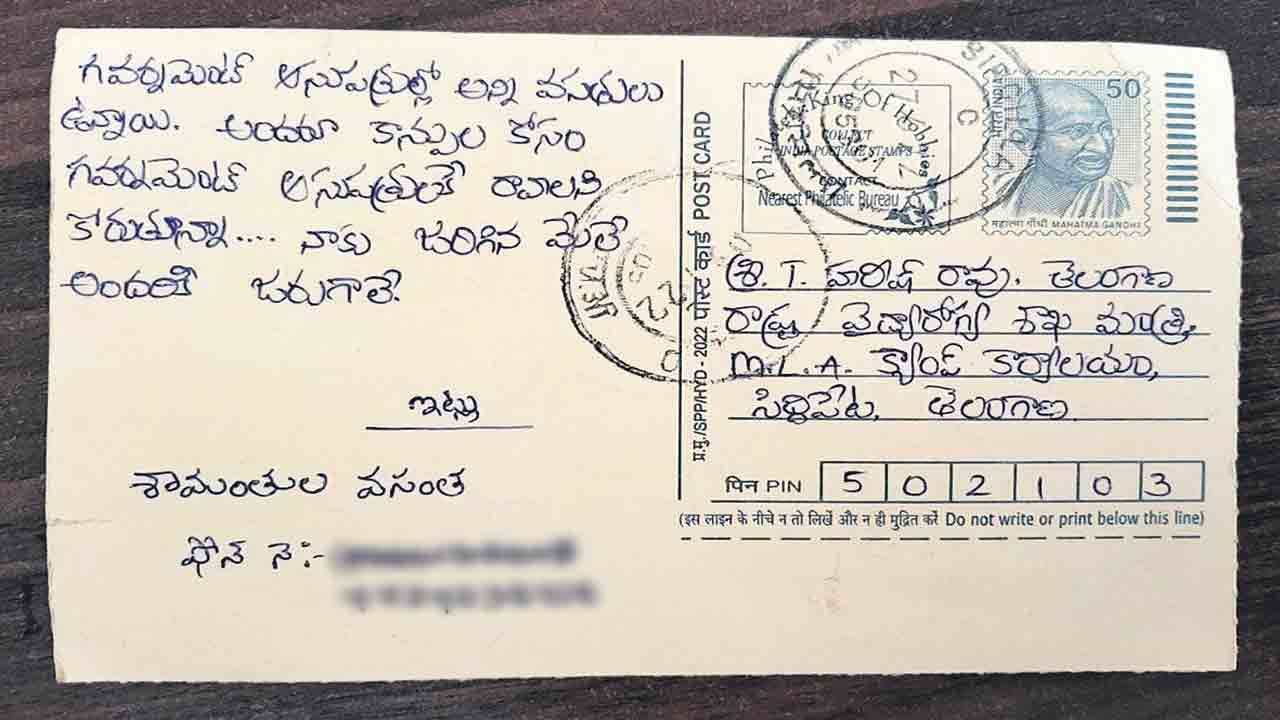 గవర్నమెంట్ ఆసుపత్రుల్లో అన్ని వసతులు
ఉన్నాయి. అందరూ కాన్పుల కోసం
గవర్నమెంట్ ఆసుపత్రులకే రావాలని
కోరుతున్నా.... నాకు జరిగిన మేలే
అందరికి జరుగాలె.
ఇట్లు
శామంతుల వసంత
ఫోన్ నె:-
प्र.मु./SPP/HYD - 2022 पोस्ट कार्ड POST CARD
COLLECT
INDIA POSTAGE STAMPS
CONTACT
Nearest Philatelic Bureau
भारत INDIA
50
महात्मा गाँधी MAHATMA GANDHI
శ్రీ. T. హరీష్ రావు. తెలంగాణ
రాష్ట్ర వైద్యారోగ్య శాఖ మంత్రి,
M.L.A. క్యాంప్ కార్యాలయం,
సిద్దిపేట, తెలంగాణ
पिन PIN 5 0 2 1 0 3
(इस लाइन के नीचे न तो लिखें और न ही मुद्रित करें Do not write or print below this line)